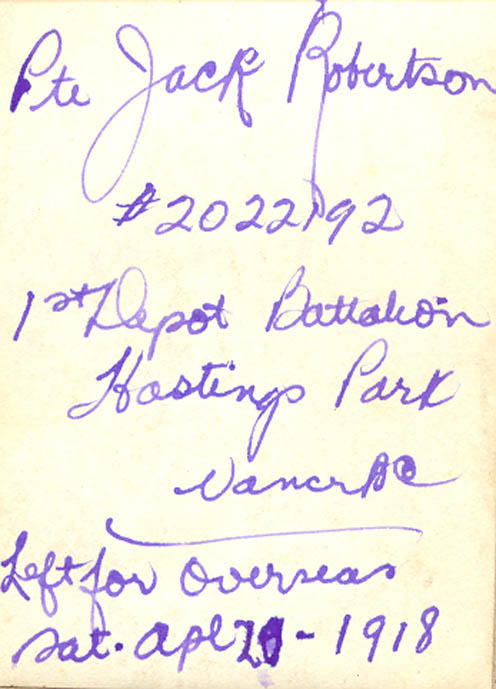 Pte Jack Robertson
#2022192
1st Depot Battalion
Hastings Park
Vancr BC
Left for Overseas
Sat. Apl - 1918